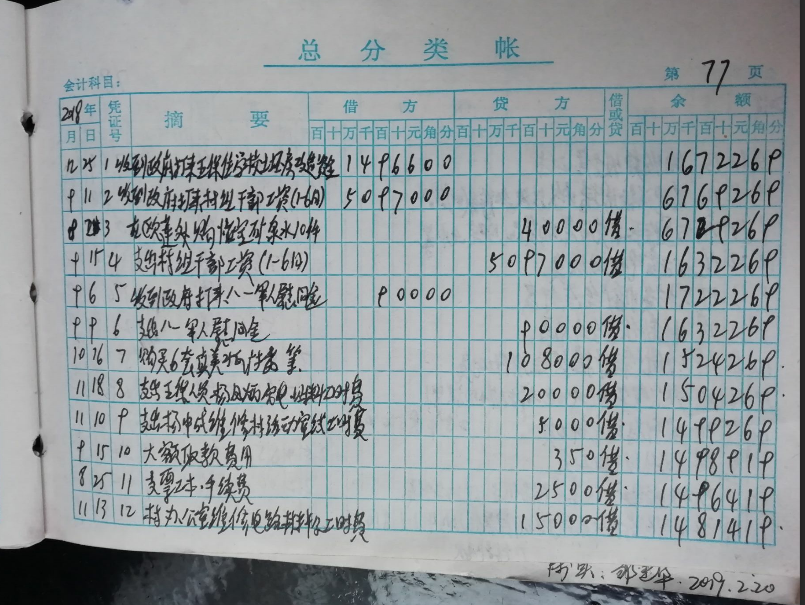 总分类帐
会计科目： 第 77 页
2018年 凭证号 摘要 借方 贷方 借或贷 余额
月 日 百十万千百十元角分 百十万千百十元角分 百十万千百十元角分
12 25 1 收到政府打来五保住房 1496600 1672269
9 11 2 收到政府打来村组干部工资(1-6月) 5097000 6769269
8 3 矿泉水10件 40000 借 6729269
9 15 4 支出村组干部工资(1-6月) 5097000 借 1632269
9 6 5 收到政府打来八一军人慰问金 90000 1722269
9 9 6 支出八一军人慰问金 90000 借 1632269
10 26 7 购买6套 108000 借 1524269
11 18 8 支出五保人员 工时费 20000 借 1504269
11 10 9 支出杨中成维修村活动室线工时费 5000 借 1499269
9 15 10 大额取款费用 350 借 1498919
8 25 11 支票工本、手续费 2500 借 1496419
11 13 12 村办公室维修电路材料、工时费 15000 借 1481419
2019.2.20